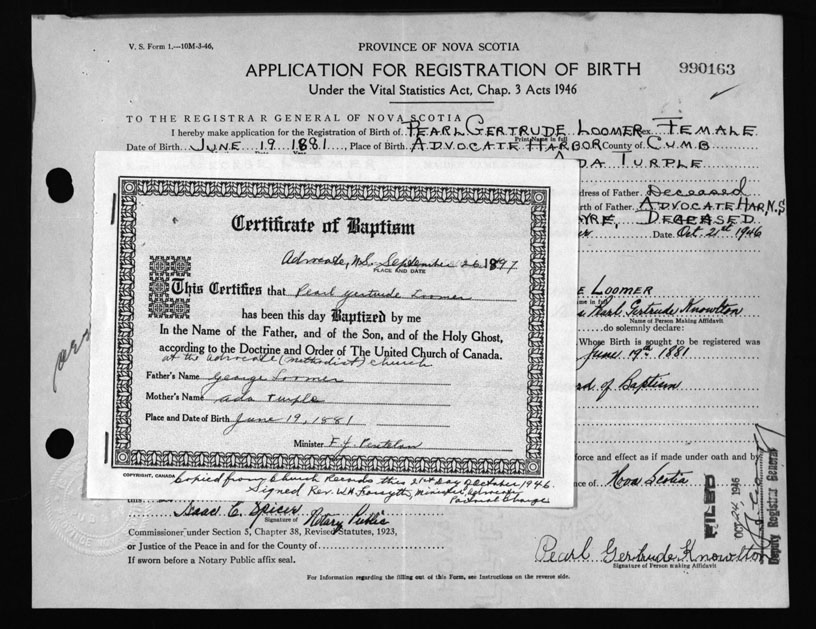 V. S. Form 1.—10M-3-46.
PROVINCE OF NOVA SCOTIA
APPLICATION FOR REGISTRATION OF BIRTH
990163
Under the Vital Statistics Act, Chap. 3 Acts 1946
TO THE REGISTRAR GENERAL OF NOVA SCOTIA
I hereby make application for the Registration of Birth of PEARL GERTRUDE LOOMER Sex FEMALE
Print Name in full
Date of Birth JUNE 19 1881, Place of Birth ADVOCATE HARBOR County of CUMB
ADA TURPLE
dress of Father Deceased
rth of Father ADVOCATE HAR, N.S
YRE, DECEASED
Date Oct. 21st 1946
Certificate of Baptism
Advocate, N.S. September 26 1897
PLACE AND DATE
This Certifies that Pearl Gertrude Loomer
has been this day Baptized by me
In the Name of the Father, and of the Son, and of the Holy Ghost,
according to the Doctrine and Order of The United Church of Canada.
at the Advocate (Methodist) Church
Father's Name George Loomer
Mother's Name Ada Turple
Place and Date of Birth June 19, 1881
Minister F. J.
COPYRIGHT, CANADA
Copied from Church Records this 21st Day October 1946.
Signed Rev. W.H. Forsyth, Minister, Advocate
Pastoral Charge
E LOOMER
me in full
Pearl Gertrude Knowlton
Name of Person Making Affidavit
do solemnly declare:
Whose Birth is sought to be registered was
June 19th 1881
rd of Baptism
force and effect as if made under oath and by
ce of Nova Scotia
FILED
OCT 24 1946
Deputy Registrar General
Isaac E. Spicer
Signature of Notary Public
Commissioner under Section 5, Chapter 38, Revised Statutes, 1923,
or Justice of the Peace in and for the County of
If sworn before a Notary Public affix seal.
Pearl Gertrude Knowlton
Signature of Person making Affidavit
For Information regarding the filling out of this Form, see Instructions on the reverse side.